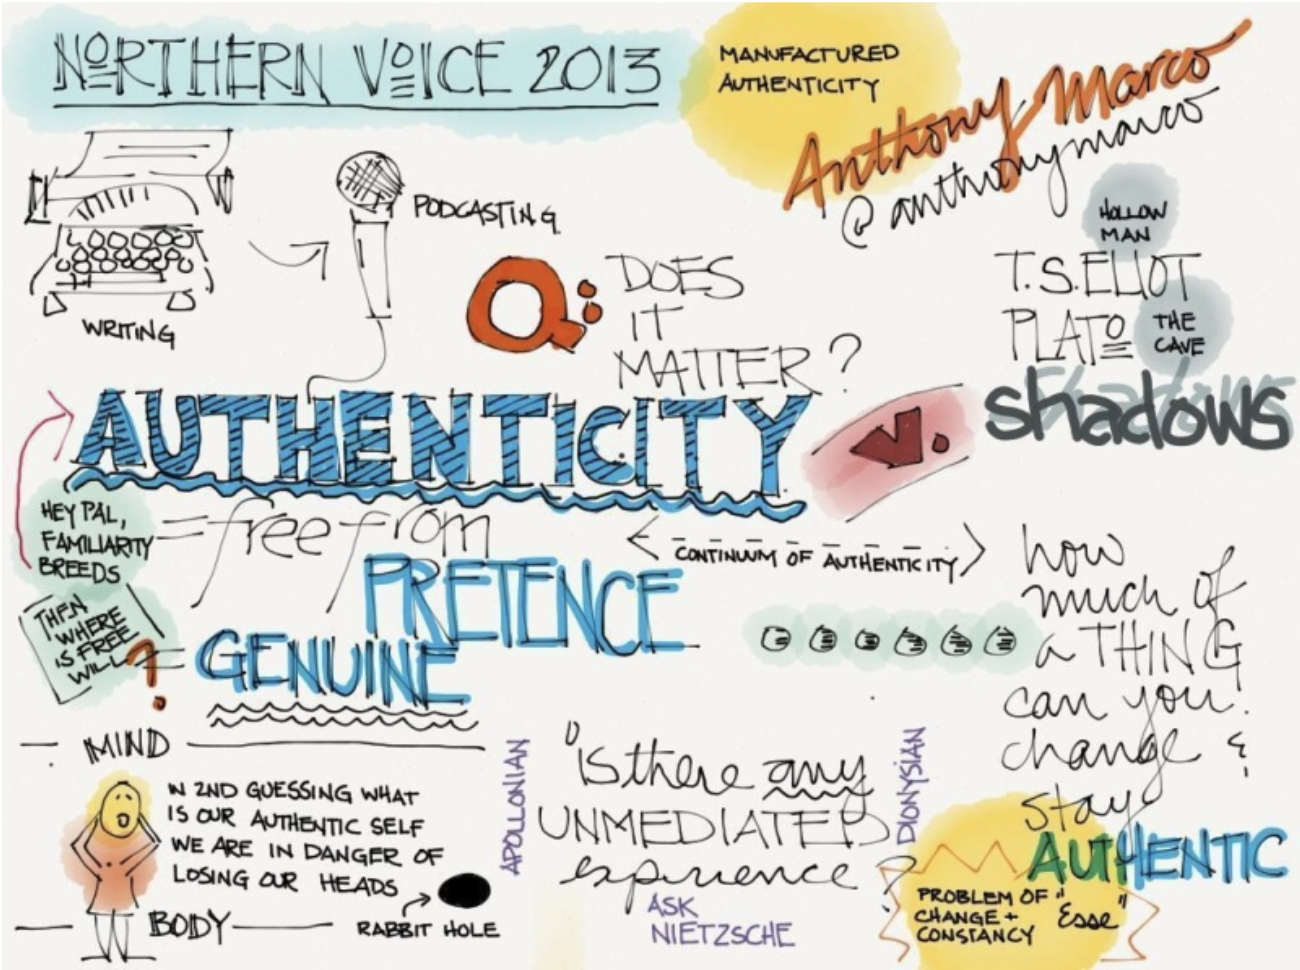 NORTHERN VOICE 2013
MANUFACTURED
AUTHENTICITY
Anthony Marco
@anthonymarco
WRITING
PODCASTING
Q:
DOES
IT
MATTER?
HOLLOW
MAN
T.S. ELIOT
PLATO
THE
CAVE
shadows
AUTHENTICITY
V.
HEY PAL,
FAMILIARITY
BREEDS
= free from
PRETENCE
THEN
WHERE
IS FREE
WILL?
= GENUINE
CONTINUUM OF AUTHENTICITY
how
much of
a THING
can you
change &
stay
AUTHENTIC
MIND
IN 2ND GUESSING WHAT
IS OUR AUTHENTIC SELF
WE ARE IN DANGER OF
LOSING OUR HEADS
RABBIT HOLE
BODY
APOLLONIAN
"is there any
UNMEDIATED
experience?
DIONYSIAN
ASK
NIETZSCHE
PROBLEM OF
CHANGE +
CONSTANCY
"Esse"